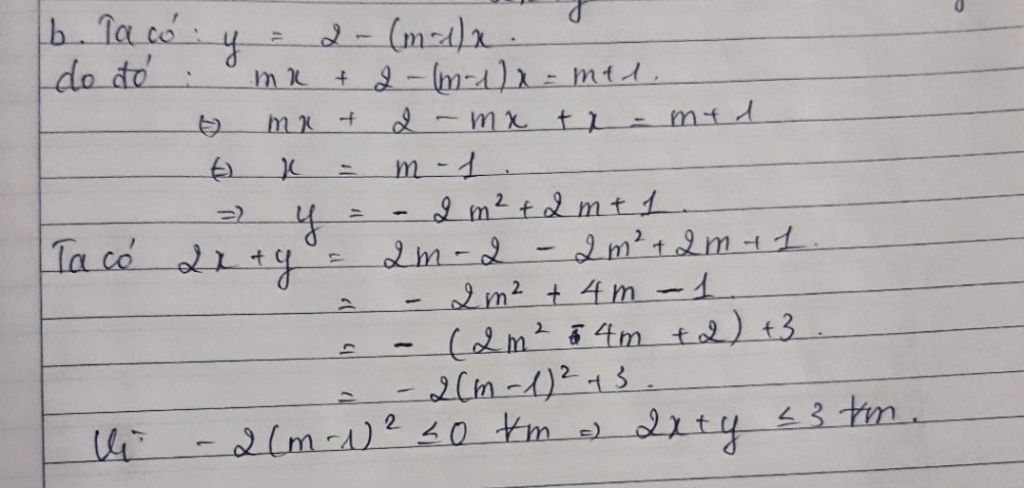 b. Ta có : y = 2 - (m-1)x .
do đó : mx + 2 - (m-1)x = m+1 .
⇔ mx + 2 - mx + x = m+1
⇔ x = m - 1 .
⇒ y = - 2m² + 2m + 1 .
Ta có 2x + y = 2m - 2 - 2m² + 2m + 1 .
= - 2m² + 4m - 1 .
= - (2m² - 4m + 2) + 3 .
= - 2(m-1)² + 3 .
Vì - 2(m-1)² ≤ 0 ∀m ⇒ 2x+y ≤ 3 ∀m .